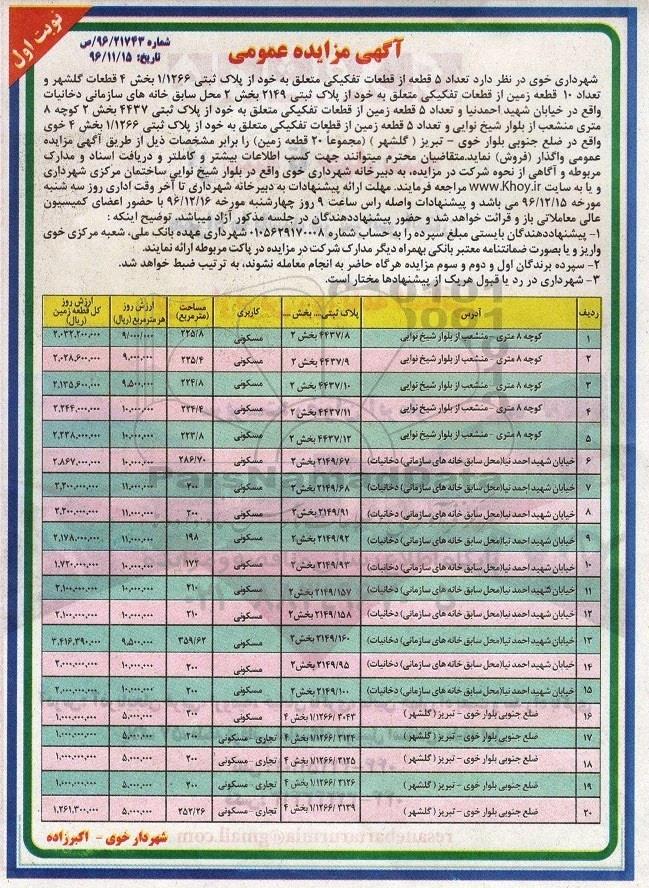 نوبت اول
شماره ۹۶/۲۱۷۴۳/ص
تاریخ: ۹۶/۱۱/۱۵
آگهی مزایده عمومی
شهرداری خوی در نظر دارد تعداد ۵ قطعه از قطعات تفکیکی متعلق به خود از پلاک ثبتی ۱/۱۲۶۶ بخش ۴ قطعات گلشهر و
تعداد ۱۰ قطعه زمین از قطعات تفکیکی متعلق به خود از پلاک ثبتی ۲۱۴۹ بخش ۲ محل سابق خانه های سازمانی دخانیات
واقع در خیابان شهید احمدنیا و تعداد ۵ قطعه زمین از قطعات تفکیکی متعلق به خود از پلاک ثبتی ۴۴۳۷ بخش ۲ کوچه ۸
متری منشعب از بلوار شیخ نوایی و تعداد ۵ قطعه زمین از قطعات تفکیکی متعلق به خود از پلاک ثبتی ۱/۱۲۶۶ بخش ۴ خوی
واقع در ضلع جنوبی بلوار خوی - تبریز ( گلشهر ) (مجموعا ۲۰ قطعه زمین) را برابر مشخصات ذیل از طریق آگهی مزایده
عمومی واگذار (فروش) نماید.متقاضیان محترم میتوانند جهت کسب اطلاعات بیشتر و کاملتر و دریافت اسناد و مدارک
مربوطه و آگاهی از نحوه شرکت در مزایده، به دبیرخانه شهرداری خوی واقع در بلوار شیخ نوایی ساختمان مرکزی شهرداری
و یا به سایت www.Khoy.ir مراجعه فرمایند. مهلت ارائه پیشنهادات به دبیرخانه شهرداری تا آخر وقت اداری روز سه شنبه
مورخه ۹۶/۱۲/۱۵ می باشد و پیشنهادات واصله راس ساعت ۹ روز چهارشنبه مورخه ۹۶/۱۲/۱۶ با حضور اعضای کمیسیون
عالی معاملاتی باز و قرائت خواهد شد و حضور پیشنهاددهندگان در جلسه مذکور آزاد میباشد. توضیح اینکه :
۱- پیشنهاددهندگان بایستی مبلغ سپرده را به حساب شماره ۰۱۰۵۶۲۹۱۷۰۰۰۸ شهرداری عهده بانک ملی، شعبه مرکزی خوی
واریز و یا بصورت ضمانتنامه معتبر بانکی بهمراه دیگر مدارک شرکت در مزایده در پاکت مربوطه ارائه نمایند.
۲- سپرده برندگان اول و دوم و سوم مزایده هرگاه حاضر به انجام معامله نشوند، به ترتیب ضبط خواهد شد.
۳- شهرداری در رد یا قبول هریک از پیشنهادها مختار است.
ردیف آدرس پلاک ثبتی.... بخش .... کاربری مساحت (مترمربع) ارزش روز هر مترمربع (ریال) ارزش روز کل قطعه زمین (ریال)
۱ کوچه ۸ متری - منشعب از بلوار شیخ نوایی ۴۴۳۷/۸ بخش ۲ مسکونی ۲۲۵/۸ ۹/۰۰۰/۰۰۰ ۲.۰۳۲.۲۰۰.۰۰۰
۲ کوچه ۸ متری - منشعب از بلوار شیخ نوایی ۴۴۳۷/۹ بخش ۲ مسکونی ۲۲۵/۴ ۹.۰۰۰.۰۰۰ ۲.۰۲۸.۶۰۰.۰۰۰
۳ کوچه ۸ متری - منشعب از بلوار شیخ نوایی ۴۴۳۷/۱۰ بخش ۲ مسکونی ۲۲۴/۸ ۹.۵۰۰.۰۰۰ ۲.۱۳۵.۶۰۰.۰۰۰
۴ کوچه ۸ متری - منشعب از بلوار شیخ نوایی ۴۴۳۷/۱۱ بخش ۲ مسکونی ۲۲۴/۴ ۱۰.۰۰۰.۰۰۰ ۲.۲۴۴.۰۰۰.۰۰۰
۵ کوچه ۸ متری - منشعب از بلوار شیخ نوایی ۴۴۳۷/۱۲ بخش ۲ مسکونی ۲۲۳/۸ ۱۰.۰۰۰.۰۰۰ ۲.۲۳۸.۰۰۰.۰۰۰
۶ خیابان شهید احمد نیا(محل سابق خانه های سازمانی) دخانیات) ۲۱۴۹/۶۷ بخش۲ مسکونی ۲۸۶/۷۰ ۱۰.۰۰۰.۰۰۰ ۲.۸۶۷.۰۰۰.۰۰۰
۷ خیابان شهید احمد نیا(محل سابق خانه های سازمانی) دخانیات) ۲۱۴۹/۶۸ بخش۲ مسکونی ۲۰۰ ۱۱.۰۰۰.۰۰۰ ۲.۲۰۰.۰۰۰.۰۰۰
۸ خیابان شهید احمد نیا(محل سابق خانه های سازمانی) دخانیات) ۲۱۴۹/۹۱ بخش۲ مسکونی ۲۰۰ ۱۱.۰۰۰.۰۰۰ ۲.۲۰۰.۰۰۰.۰۰۰
۹ خیابان شهید احمد نیا(محل سابق خانه های سازمانی) دخانیات) ۲۱۴۹/۹۲ بخش۲ مسکونی ۱۹۸ ۱۱.۰۰۰.۰۰۰ ۲.۱۷۸.۰۰۰.۰۰۰
۱۰ خیابان شهید احمد نیا(محل سابق خانه های سازمانی) دخانیات) ۲۱۴۹/۹۳ بخش۲ مسکونی ۱۷۲ ۱۰.۰۰۰.۰۰۰ ۱.۷۲۰.۰۰۰.۰۰۰
۱۱ خیابان شهید احمد نیا(محل سابق خانه های سازمانی) دخانیات) ۲۱۴۹/۱۵۷ بخش۲ مسکونی ۲۱۰ ۱۰.۰۰۰.۰۰۰ ۲.۱۰۰.۰۰۰.۰۰۰
۱۲ خیابان شهید احمد نیا(محل سابق خانه های سازمانی) دخانیات) ۲۱۴۹/۱۵۸ بخش۲ مسکونی ۲۱۰ ۱۰.۰۰۰.۰۰۰ ۲.۱۰۰.۰۰۰.۰۰۰
۱۳ خیابان شهید احمد نیا(محل سابق خانه های سازمانی) دخانیات) ۲۱۴۹/۱۶۰ بخش۲ مسکونی ۳۵۹/۶۲ ۹.۵۰۰.۰۰۰ ۳.۴۱۶.۳۹۰.۰۰۰
۱۴ خیابان شهید احمد نیا(محل سابق خانه های سازمانی) دخانیات) ۲۱۴۹/۹۵ بخش۲ مسکونی ۲۰۰ ۱۰.۰۰۰.۰۰۰ ۲.۰۰۰.۰۰۰.۰۰۰
۱۵ خیابان شهید احمد نیا(محل سابق خانه های سازمانی) دخانیات) ۲۱۴۹/۱۰۰ بخش۲ مسکونی ۲۰۰ ۱۰.۰۰۰.۰۰۰ ۲.۰۰۰.۰۰۰.۰۰۰
۱۶ ضلع جنوبی بلوار خوی - تبریز ( گلشهر ) ۱/۱۲۶۶/ ۳۰۴۳ بخش ۴ مسکونی ۲۰۰ ۵.۰۰۰.۰۰۰ ۱.۰۰۰.۰۰۰.۰۰۰
۱۷ ضلع جنوبی بلوار خوی - تبریز ( گلشهر ) ۱/۱۲۶۶/ ۳۱۲۴ بخش ۴ تجاری - مسکونی ۲۰۰ ۵.۰۰۰.۰۰۰ ۱.۰۰۰.۰۰۰.۰۰۰
۱۸ ضلع جنوبی بلوار خوی - تبریز ( گلشهر ) ۱/۱۲۶۶/ ۳۱۲۵ بخش ۴ تجاری - مسکونی ۲۰۰ ۵.۰۰۰.۰۰۰ ۱.۰۰۰.۰۰۰.۰۰۰
۱۹ ضلع جنوبی بلوار خوی - تبریز ( گلشهر ) ۱/۱۲۶۶/ ۳۱۲۶ بخش ۴ تجاری - مسکونی ۲۰۰ ۵.۰۰۰.۰۰۰ ۱.۰۰۰.۰۰۰.۰۰۰
۲۰ ضلع جنوبی بلوار خوی - تبریز ( گلشهر ) ۱/۱۲۶۶/ ۳۱۳۹ بخش ۴ تجاری - مسکونی ۲۵۲/۲۶ ۵.۰۰۰.۰۰۰ ۱.۲۶۱.۳۰۰.۰۰۰
شهردار خوی - اکبرزاده